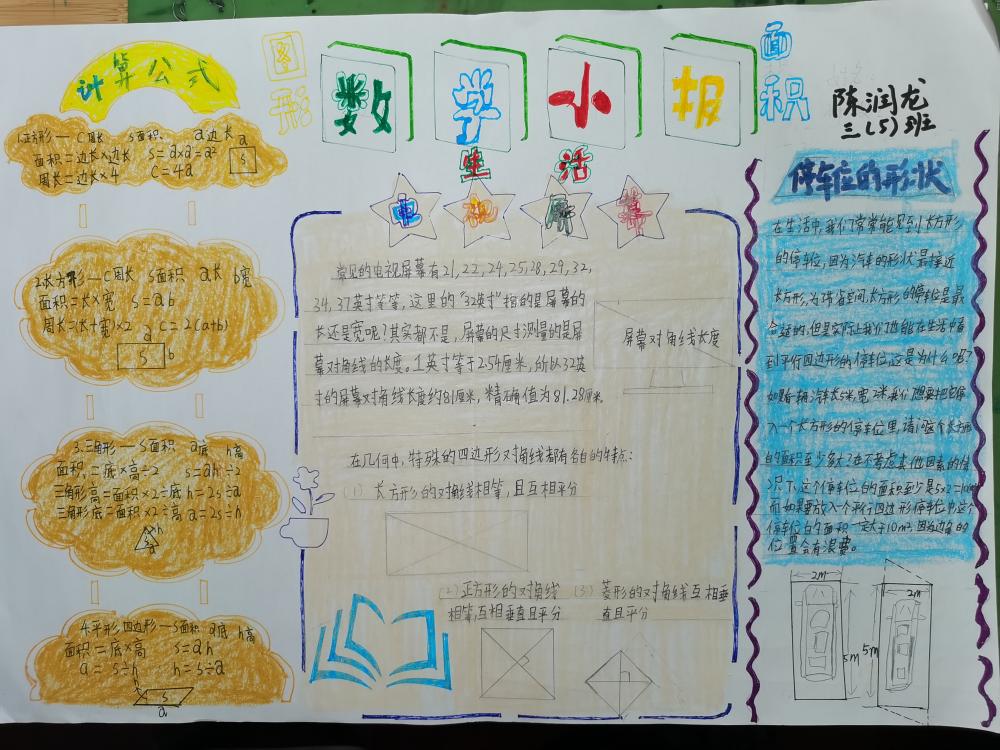 图形
数学小报
面积
陈润龙
三(5)班
生活
电视屏幕
计算公式
1.正方形—C周长 S面积 a边长
面积=边长×边长 S=a×a=a²
周长=边长×4 C=4a
a
S
2.长方形—C周长 S面积 a长 b宽
面积=长×宽 S=ab
周长=(长+宽)×2 C=2(a+b)
a
S b
3.三角形—S面积 a底 h高
面积=底×高÷2 S=ah÷2
三角形高=面积×2÷底 h=2s÷a
三角形底=面积×2÷高 a=2s÷h
h
4.平行四边形—S面积 a底 h高
面积=底×高 S=ah
a=S÷h h=S÷a
h
S
a
常见的电视屏幕有21,22,24,25,28,29,32,
34,37英寸等等,这里的“32英寸”指的是屏幕的
长还是宽呢?其实都不是,屏幕的尺寸测量的是屏
幕对角线的长度。1英寸等于2.54厘米,所以32英
寸的屏幕对角线长度约81厘米,精确值为81.28厘米。
屏幕对角线长度
在几何中,特殊的四边形对角线都有各自的特点:
(1) 长方形的对角线相等,且互相平分
(2)正方形的对角线
相等,互相垂直且平分
(3) 菱形的对角线互相垂
直且平分
停车位的形状
在生活中,我们常常能见到长方形
的停车位,因为汽车的形状最接近
长方形,为节省空间,长方形的停车位是最
合适的,但是实际上我们也能在生活中看
到平行四边形的停车位,这是为什么呢?
如果一辆汽车长5米,宽2米,我们想要把它停
入一个长方形的停车位里,请问这个长方形
的面积至少多大?在不考虑其他因素的情
况下,这个停车位的面积至少是5×2=10m²
而如果要放入个平行四边形停车位中,这个
停车位的面积一定大于10m²,因为边角的
位置会有浪费。
2m
5m
2m
5m